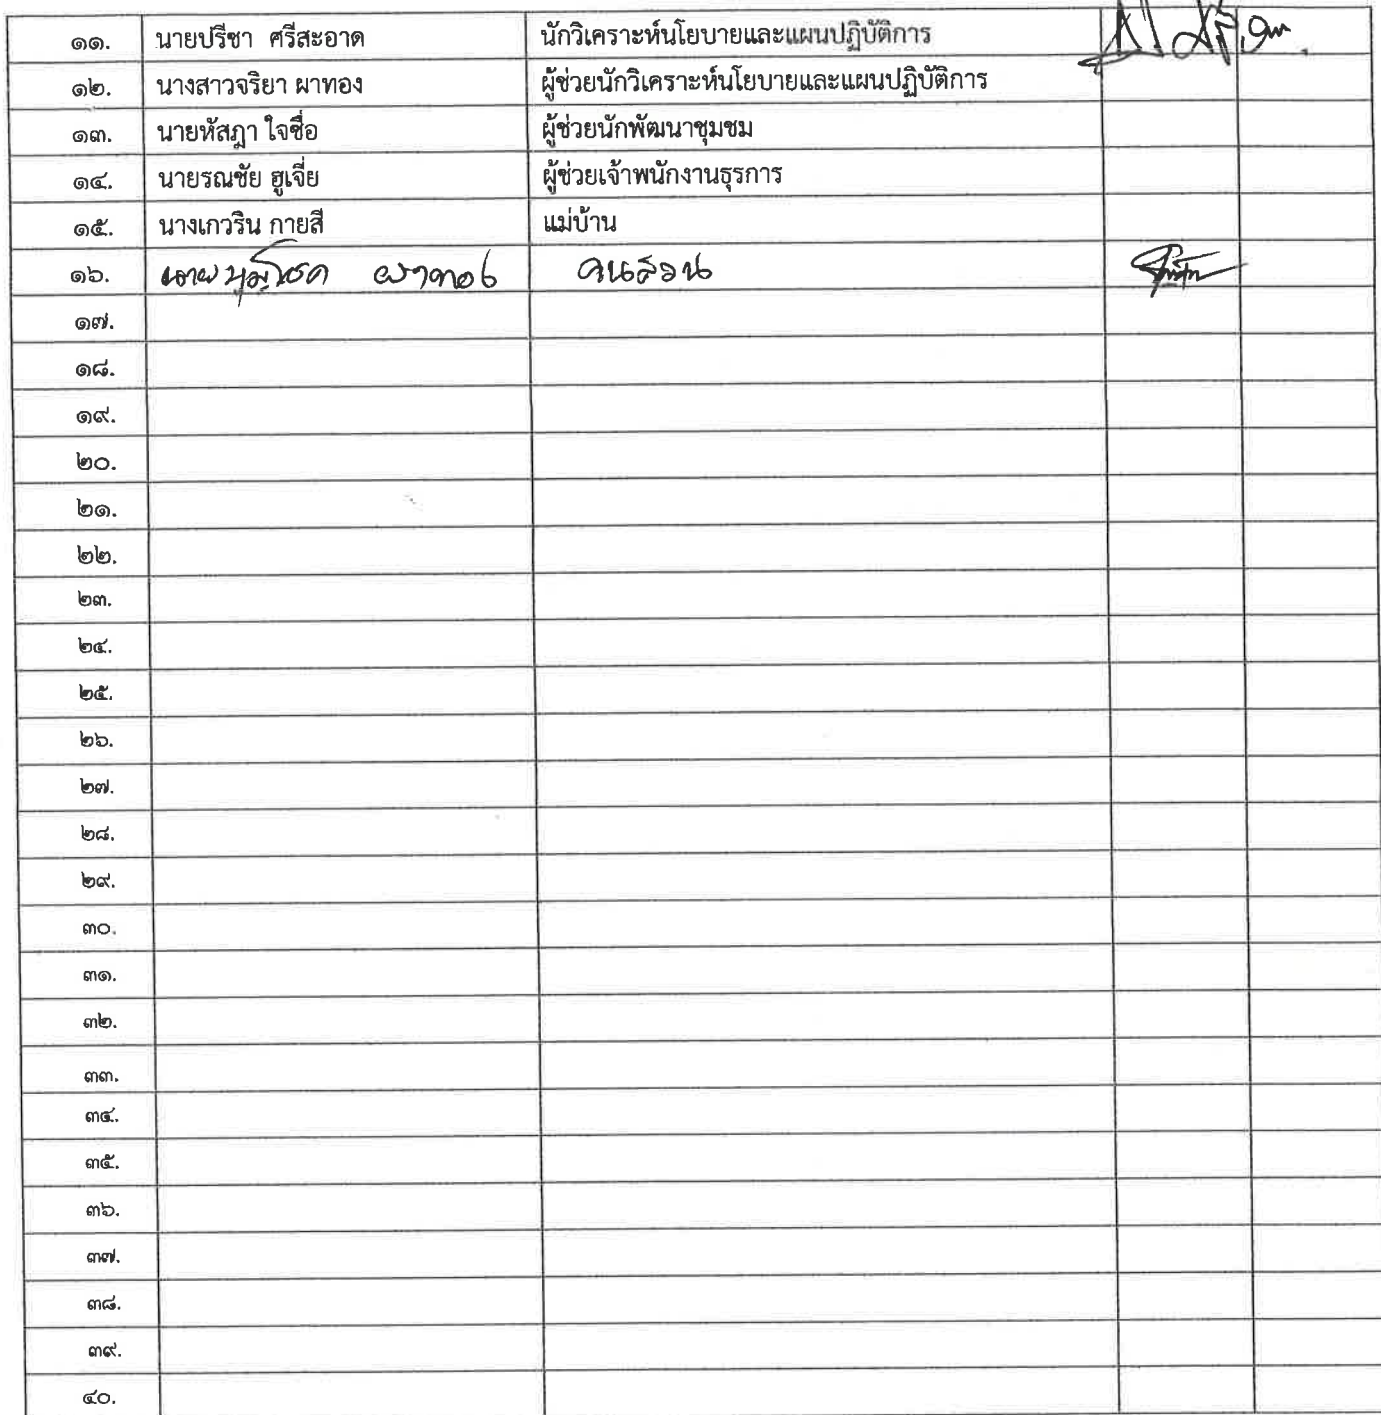 ๑๑. นายปรีชา ศรีสะอาด นักวิเคราะห์นโยบายและแผนปฏิบัติการ
๑๒. นางสาวจริยา ผาทอง ผู้ช่วยนักวิเคราะห์นโยบายและแผนปฏิบัติการ
๑๓. นายหัสฎา ใจซื่อ ผู้ช่วยนักพัฒนาชุมชม
๑๔. นายรณชัย ฮูเจี่ย ผู้ช่วยเจ้าพนักงานธุรการ
๑๕. นางเกวริน กายสี แม่บ้าน
๑๖. นาย ผาทอง คนสวน
๑๗.
๑๘.
๑๙.
๒๐.
๒๑.
๒๒.
๒๓.
๒๔.
๒๕.
๒๖.
๒๗.
๒๘.
๒๙.
๓๐.
๓๑.
๓๒.
๓๓.
๓๔.
๓๕.
๓๖.
๓๗.
๓๘.
๓๙.
๔๐.